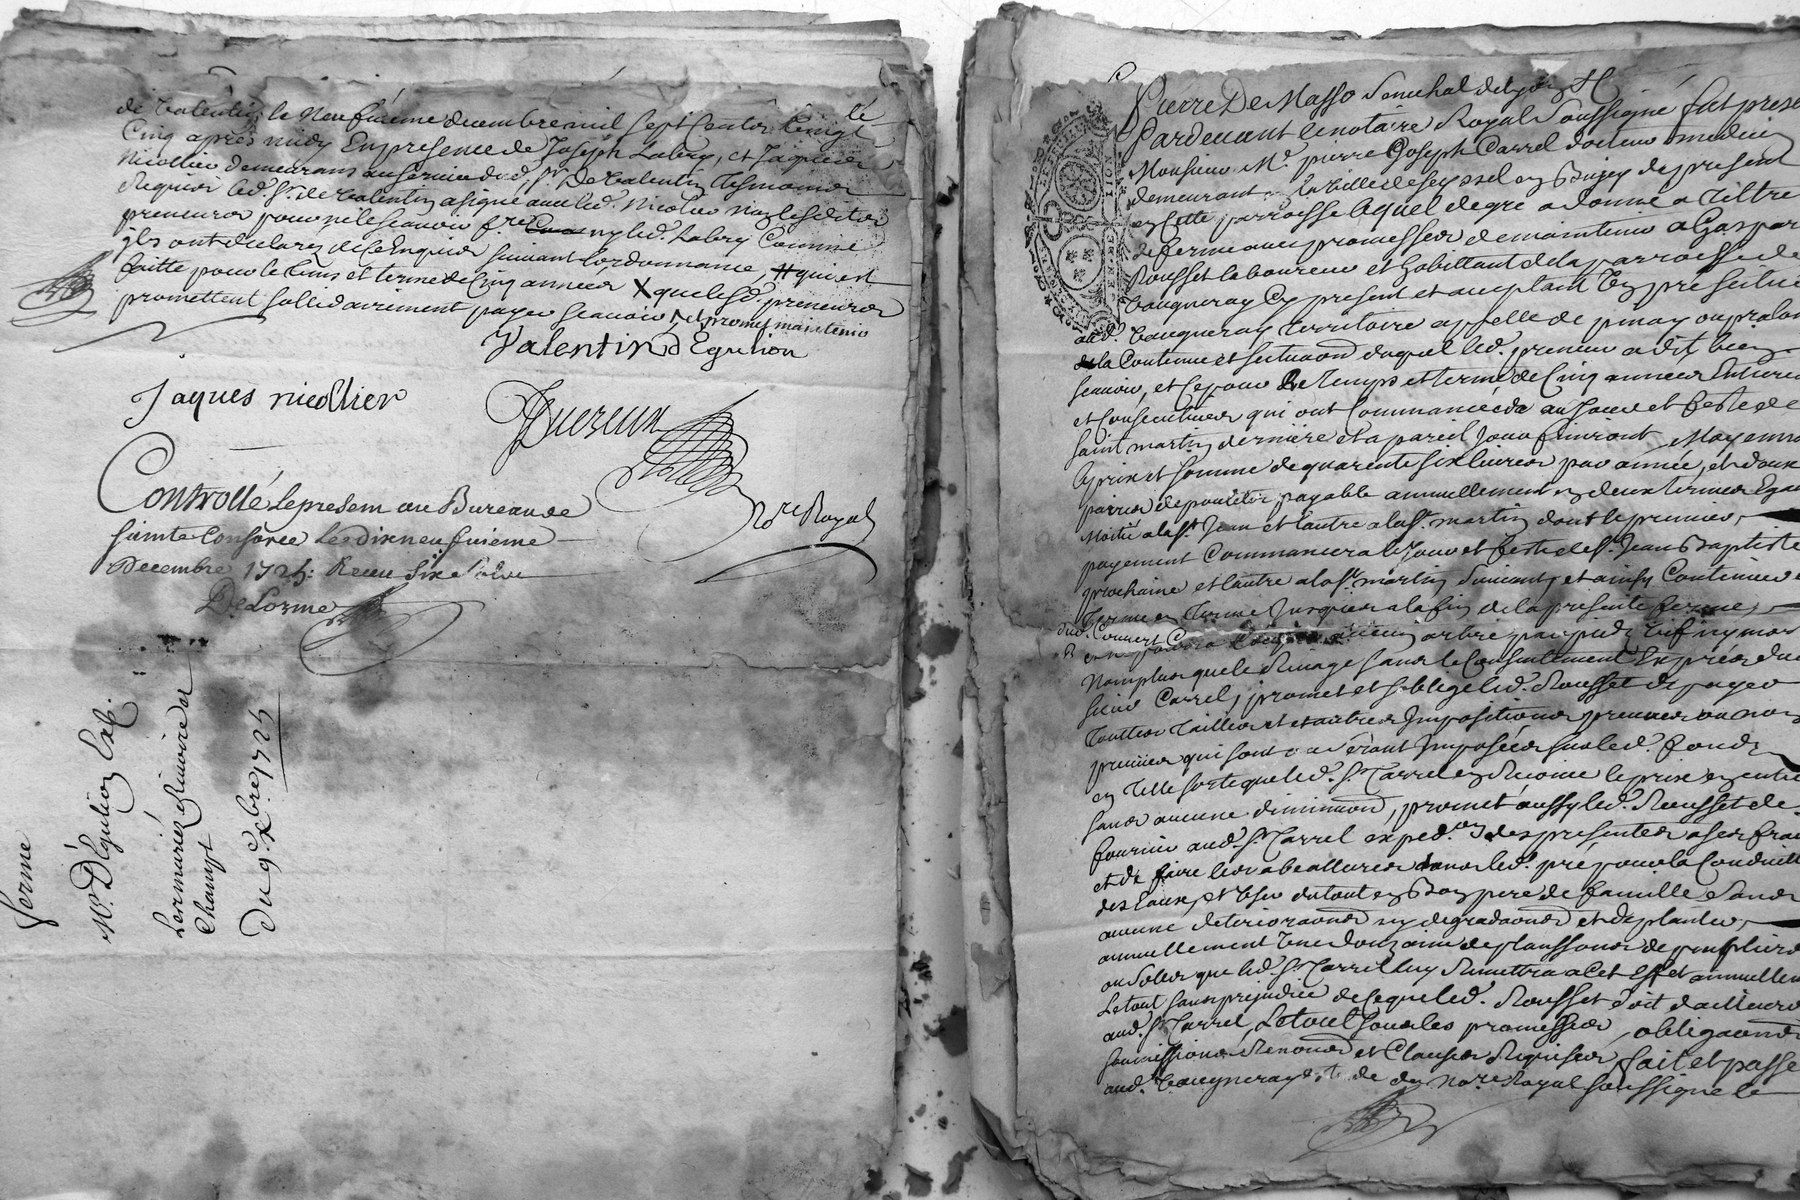 de Valentin, le Neufvieme decembre mil Sept Centz Vingt
Cinq apres midy En presence de Joseph Labry, et Jaques
Nicollier demeurans au service dud. Sr. De Valentin tesmoins
Requis led. Sr. de Valentin a signé avec led. Nicolier non lesdits
preneurs pour ne le scavoir f.re ny led. Labry Comme
jls ont declarez de ce Enquis suivant lordonnance, # qui est
faitte pour le tems et terme de Cinq années X que lesd. preneurs
promettent sollidairement payer scavoir, et promet maintenir
Valentin D'Egullion
Jaques nicollier
Duxeux
No.re Royal
Controllé le present au Bureau de
sainte Consorce Le dixneufvieme
Decembre 1725. Receu Six Sols
DeLorme
ferme
Mr. D'Egulion
Les mariez Rivoire et
Chanyt
Du 9e. xbre 1725
Pierre De Masso Senechal de Lyon
Pardevant le notaire Royal Soussigné fut present
Monsieur Me. pierre Joseph Carrel docteur medecin
demeurant en la Ville de Seyssel en Bugey de present
en Cette parroisse Lequel de gré a donné a Tiltre
de ferme avec promesse de maintenir a Gaspar
Rousset laboureur et habittant de la parroisse de
Vaugneray Cy present et acceptant Un pré scitué
aud. Vaugneray territoire appellé de pinay ou pralon
de la Contenue et scituaon duquel led. preneur a dit bien
scavoir, et Ce pour le temps et terme de Cinq années Entieres
et Consecutives qui ont Commancées au jour et feste de
saint martin derniere et a pareil jour finiront, Moyennant
le prix et somme de quarente six livres par année, et deux
paires de poulets payable annuellement en deux termes Egaux
Moitié a la St. Jean et l'autre a la St. martin dont le premier
payement Commancera le jour et feste de St. Jean Baptiste
prochaine et l'autre a la St. martin suivant, et ainsy Continuer de
terme en terme jusques a la fin de la presente ferme,
aucun arbre par pied, vif ny mort
Nomplus que le Rivage sans le Consentement Exprès dud.
sieur Carrel, promet et s'oblige led. Rousset de payer
touttes tailles et autres Impositions preveues ou non
preveues qui sont ou seront Imposées sur led. fonds
en telle sorte que led. Sr. Carrel en Recoive le prix en entier
sans aucune diminuon, promet aussy led. Rousset de
fournir aud. Sr. Carrel exped.on des presentes a ses frais
et de faire les abeattures dans led. pré pour la Conduitte
des Eaux, et User du tout en Bon pere de famille sans
aucune deterioraons ny degradaons et de planter
annuellement Une douzaine de plansons de peupliers
ou Soles que led. Sr. Carrel luy Remettra a cet Effet annuellement
Le tout sans prejudice de Ce que led. Rousset doit d'ailleurs
aud. Sr. Carrel, Le tout sous les promesses, obligaons
soumissions Renonons et Clauses Requises, fait et passé
aud. Vaugneray No.re Royal soussigné le